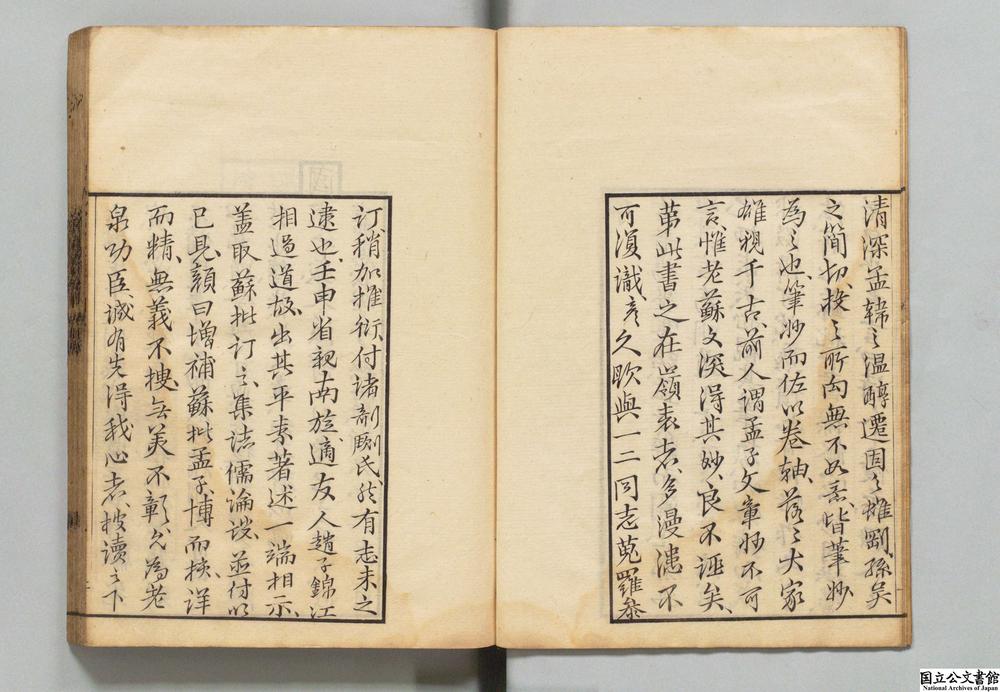 清深孟韓之溫醇遷固之雄剛孫吳
之簡切投之所向無不如意皆筆妙
為之也筆妙而佐以卷軸落之大家
雄視千古前人謂孟子文章妙不可
言惟老蘇文深得其妙良不誣矣
第此書之在嶺表者多漫漶不
可復識彥之歟與一二同志蒐羅參
訂稍加推衍付諸剞劂氏然有志未之
逮也壬申省親南旋適友人趙子錦江
相過道故出其平素著述一端相示
蓋取蘇批訂之集諸儒論談並付以
已見顏曰增補蘇批孟子博而核詳
而精無義不搜無美不彰允為老
泉功臣誠有先得我心者披讀之下
国立公文書館
National Archives of Japan